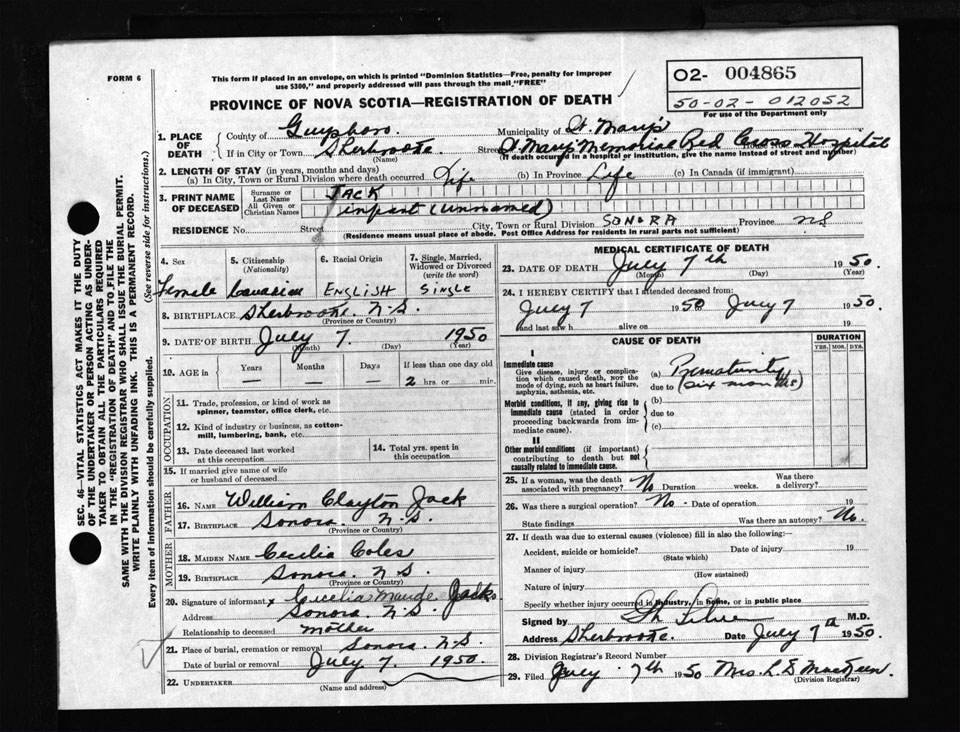 FORM 6
This form if placed in an envelope, on which is printed "Dominion Statistics—Free, penalty for improper
use $300," and properly addressed will pass through the mail, "FREE"
02- 004865
50-02-012052
For use of the Department only
PROVINCE OF NOVA SCOTIA—REGISTRATION OF DEATH
SEC. 46—VITAL STATISTICS ACT MAKES IT THE DUTY
OF THE UNDERTAKER OR PERSON ACTING AS UNDER-
TAKER TO OBTAIN ALL THE PARTICULARS REQUIRED
IN THE "REGISTRATION OF DEATH" AND TO FILE THE
SAME WITH THE DIVISION REGISTRAR WHO SHALL ISSUE THE BURIAL PERMIT.
WRITE PLAINLY WITH UNFADING INK. THIS IS A PERMANENT RECORD.
Every item of information should be carefully supplied. (See reverse side for instructions.)
1. PLACE OF DEATH County of Guysboro. Municipality of St. Mary's
If in City or Town Sherbrooke. (Name) Street St Mary's Memorial Red Cross Hospital
(If death occurred in a hospital or institution, give the name instead of street and number)
2. LENGTH OF STAY (in years, months and days)
(a) In City, Town or Rural Division where death occurred Life (b) In Province Life (c) In Canada (if immigrant)
3. PRINT NAME OF DECEASED Surname or Last Name JACK
All Given or Christian Names infant (unnamed)
RESIDENCE No. Street City, Town or Rural Division SONORA Province NS
(Residence means usual place of abode. Post Office Address for residents in rural parts not sufficient)
4. Sex Female
5. Citizenship (Nationality) Canadian
6. Racial Origin ENGLISH
7. Single, Married, Widowed or Divorced (write the word) Single
8. BIRTHPLACE Sherbrooke. N.S.
(Province or Country)
9. DATE OF BIRTH July 7. 1950
(Month) (Day) (Year)
10. AGE in Years — Months — Days — If less than one day old 2 hrs. or min.
OCCUPATION
11. Trade, profession, or kind of work as spinner, teamster, office clerk, etc.
12. Kind of industry or business, as cotton-mill, lumbering, bank, etc.
13. Date deceased last worked at this occupation
14. Total yrs. spent in this occupation
15. If married give name of wife or husband of deceased
FATHER
16. Name William Clayton Jack
17. Birthplace Sonora. N.S.
(Province or Country)
MOTHER
18. MAIDEN NAME Cecilia Coles
19. BIRTHPLACE Sonora. N.S.
(Province or Country)
20. Signature of informant x Cecelia Maude Jack
Address Sonora. N.S.
Relationship to deceased Mother
21. Place of burial, cremation or removal Sonora. N.S.
Date of burial or removal July 7. 1950.
22. UNDERTAKER
(Name and address)
MEDICAL CERTIFICATE OF DEATH
23. DATE OF DEATH July 7th 1950.
(Month) (Day) (Year)
24. I HEREBY CERTIFY that I attended deceased from:
July 7 1950 July 7 1950
and last saw h alive on 19
CAUSE OF DEATH
DURATION
YRS. MOS. DYS.
I
Immediate cause
Give disease, injury or complication which caused death, NOT the mode of dying, such as heart failure, asphyxia, asthenia, etc.
(a) Prematurity
due to (six months)
Morbid conditions, if any, giving rise to immediate cause (stated in order proceeding backwards from immediate cause).
(b)
due to
(c)
II
Other morbid conditions (if important) contributing to death but not causally related to immediate cause.
25. If a woman, was the death associated with pregnancy? No Duration weeks. Was there a delivery?
26. Was there a surgical operation? No - Date of operation 19
State findings Was there an autopsy? No.
27. If death was due to external causes (violence) fill in also the following:—
Accident, suicide or homicide? Date of injury 19
(State which)
Manner of injury
(How sustained)
Nature of injury
Specify whether injury occurred in industry, in home, or in public place
Signed by M.D.
Address Sherbrooke. Date July 7th 1950.
28. Division Registrar's Record Number
29. Filed July 7th 1950 Mrs. L.
(Division Registrar)